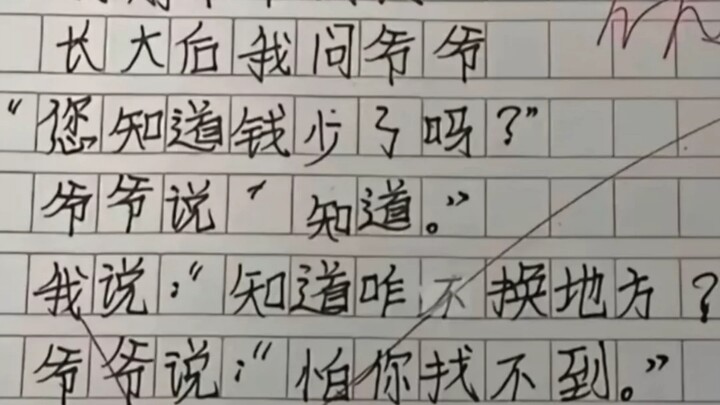 长大后我问爷爷
“您知道钱少了吗？”
爷爷说“知道。”
我说：“知道咋不换地方？
爷爷说：“怕你找不到。”